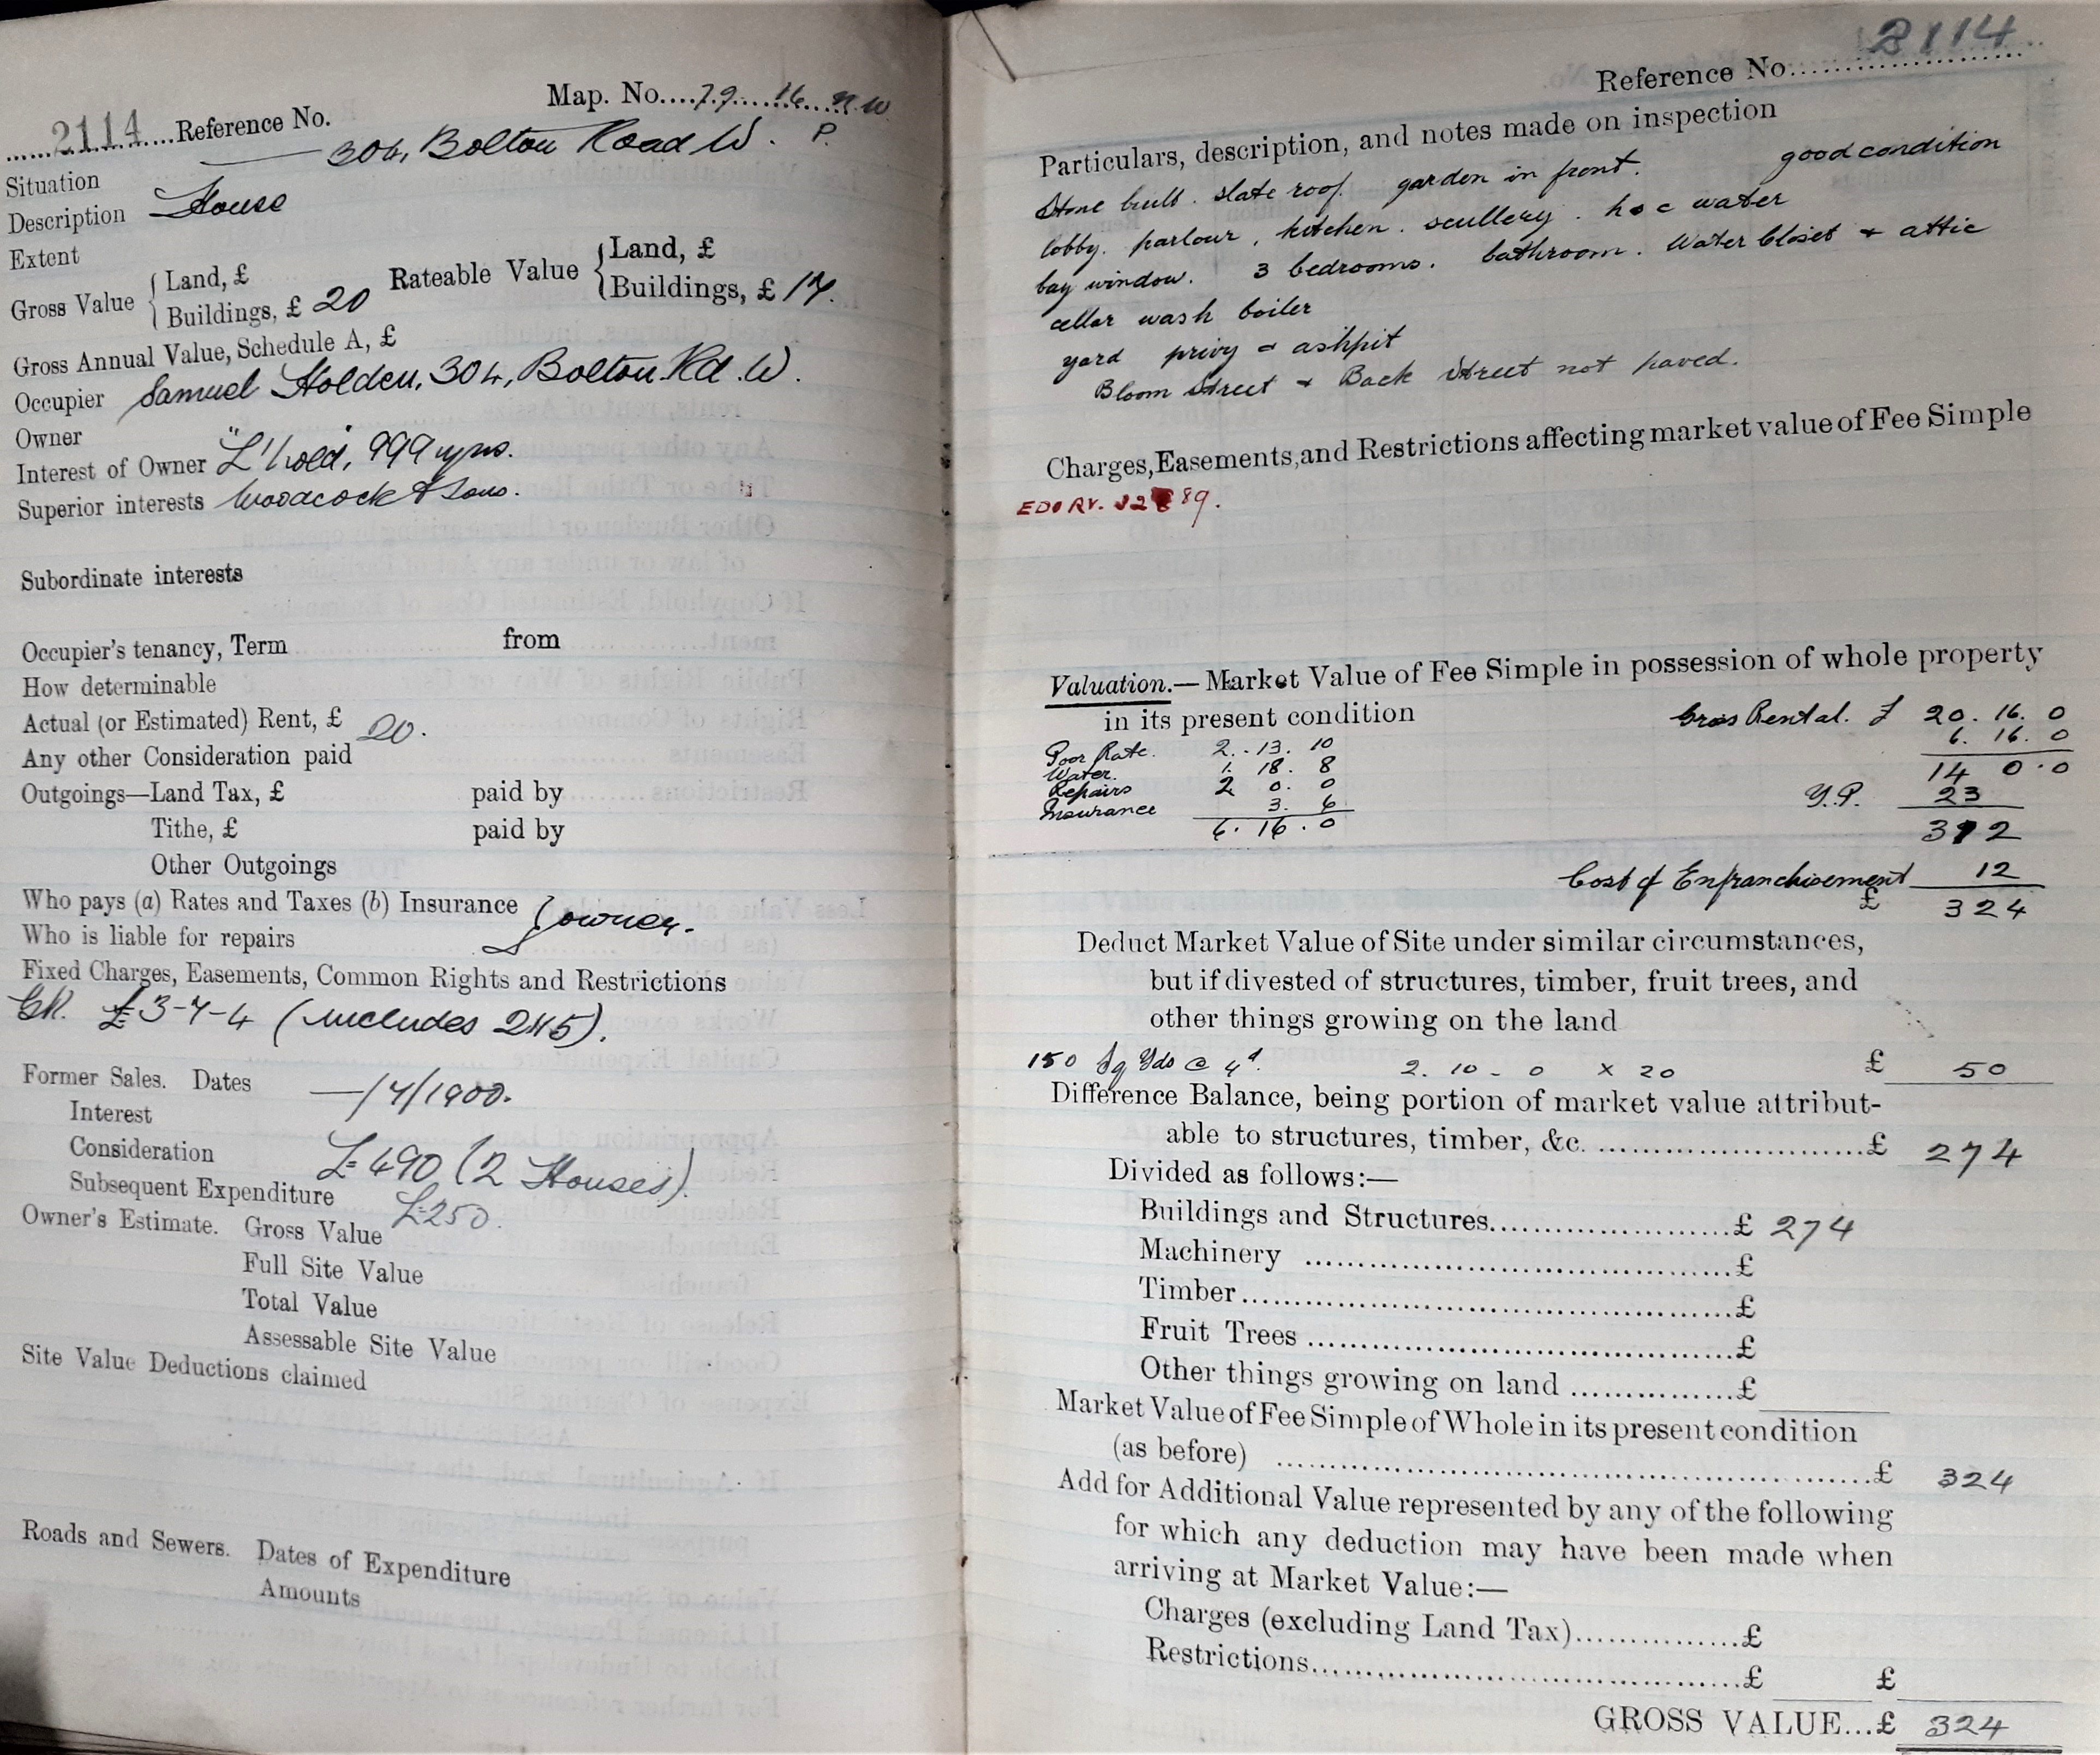 Map. No....79......16...N.W
......2114......Reference No.
Situation 304, Bolton Road W. P.
Description House
Extent
Gross Value { Land, £ Rateable Value { Land, £
Buildings, £ 20 Buildings, £ 17.
Gross Annual Value, Schedule A, £
Occupier Samuel Holden, 304, Bolton Rd. W.
Owner "
Interest of Owner L'hold, 999 yrs.
Superior interests Woodcock & Sons.
Subordinate interests
Occupier's tenancy, Term from
How determinable
Actual (or Estimated) Rent, £ 20.
Any other Consideration paid
Outgoings—Land Tax, £ paid by
Tithe, £ paid by
Other Outgoings
Who pays (a) Rates and Taxes (b) Insurance } owner.
Who is liable for repairs
Fixed Charges, Easements, Common Rights and Restrictions
GR. £3-7-4 (includes 2115).
Former Sales. Dates —/7/1900.
Interest
Consideration £490 (2 Houses).
Subsequent Expenditure
Owner's Estimate. Gross Value £250.
Full Site Value
Total Value
Assessable Site Value
Site Value Deductions claimed
Roads and Sewers. Dates of Expenditure
Amounts
2114
Reference No........................
Particulars, description, and notes made on inspection
Stone built. slate roof. garden in front. good condition
lobby. parlour, kitchen. scullery. h & c water
bay window. 3 bedrooms. bathroom. Water Closet & attic
cellar wash boiler
yard privy & ashpit
Bloom Street & Back Street not paved.
Charges, Easements, and Restrictions affecting market value of Fee Simple
Valuation.— Market Value of Fee Simple in possession of whole property
in its present condition
Gross Rental. £ 20. 16. 0
6. 16. 0
14 0.0
Y.P. 23
312
Poor Rate. 2. 13. 10
Water. 1. 18. 8
Repairs 2 0. 0
Insurance 3. 6
6. 16. 0
Cost of Enfranchisement 12
£ 324
Deduct Market Value of Site under similar circumstances,
but if divested of structures, timber, fruit trees, and
other things growing on the land
150 Sq Yds @ 4d. 2. 10 - 0 x 20 £ 50
Difference Balance, being portion of market value attribut-
able to structures, timber, &c. ........................£ 274
Divided as follows:—
Buildings and Structures........................£ 274
Machinery ........................£
Timber........................£
Fruit Trees ........................£
Other things growing on land ................£
Market Value of Fee Simple of Whole in its present condition
(as before) ........................£ 324
Add for Additional Value represented by any of the following
for which any deduction may have been made when
arriving at Market Value:—
Charges (excluding Land Tax)................£
Restrictions........................£ £
GROSS VALUE...£ 324